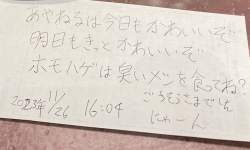 あやねるは今日もかわいいぞ
明日もきっとかわいいぞ
ホモハゲは臭いメシを食ってね?
ごちそうさまでした
2023年11/26 16:04
にゃーん